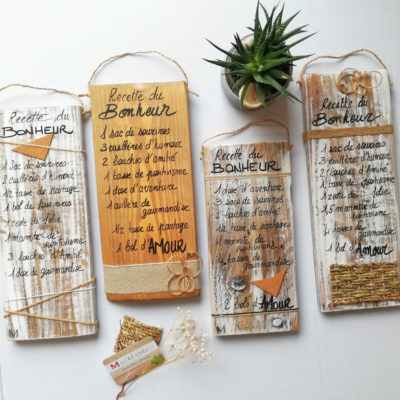 Recette du
BONHEUR
1 sac de sourires
3 cuillères d'humour
2 louches d'amitié
1/2 tasse de partage
1 zeste de folie
3 louches d'Amitié
1 dose de gourmandise
Recette du
BONHEUR
1 sac de sourires
3 cuillères d'humour
2 louches d'amitié
1 tasse de positivisme
1 dose d'aventure
1 cuillère de
gourmandise
1/2 tasse de partage
1 bol d'AMOUR
Recette du
BONHEUR
1 dose d'aventure
3 sacs de sourires
2 louches d'amitié
1/2 tasse de partage
1 marmite de
positivisme
1/2 tasse de
gourmandise
2 bols d'AMOUR
Recette du
BONHEUR
1 sac de sourires
3 cuillères d'humour
2 louches d'amitié
1/2 tasse de partage
positivisme
1 tasse de
gourmandise
1 bol d'AMOUR